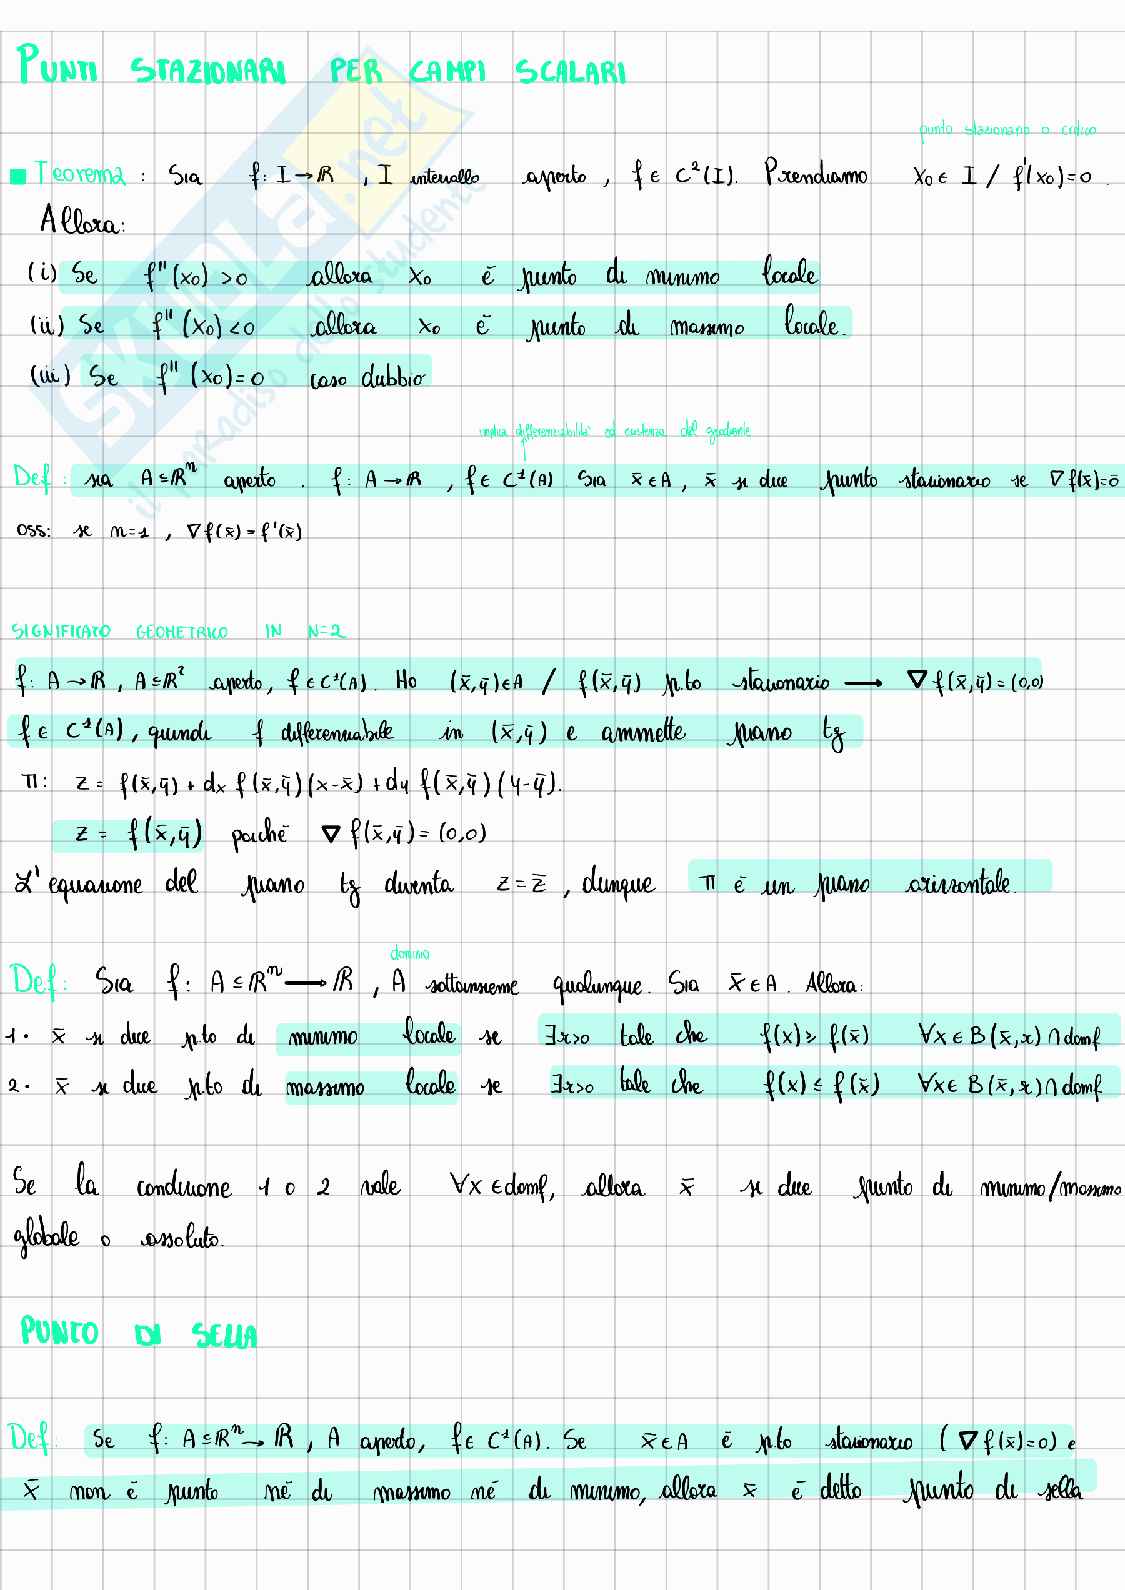 PUNTI STAZIONARI PER CAMPI SCALARI
punto stazionario o critico
Teorema : Sia f: I → ℝ , I intervallo aperto , f ∈ C²(I). Prendiamo x₀ ∈ I / f'(x₀)=0 .
Allora:
(i) Se f''(x₀) >0 allora x₀ è punto di minimo locale
(ii) Se f''(x₀) <0 allora x₀ è punto di massimo locale.
(iii) Se f''(x₀)=0 caso dubbio
implica differenziabilità ed esistenza del gradiente
Def : sia A⊆ℝⁿ aperto . f: A → ℝ , f ∈ C¹(A) Sia x̄ ∈ A , x̄ si dice punto stazionario se ∇f(x̄)=0
oss: se n=1 , ∇f(x̄) = f'(x̄)
SIGNIFICATO GEOMETRICO IN N=2
f: A → ℝ , A⊆ℝ² aperto, f ∈ C¹(A). Ho (x̄,ȳ) ∈ A / f(x̄,ȳ) p.to stazionario → ∇f(x̄,ȳ) = (0,0)
f ∈ C¹(A), quindi f differenziabile in (x̄,ȳ) e ammette piano tg
π: z = f(x̄,ȳ) + dx f(x̄,ȳ)(x-x̄) + dy f(x̄,ȳ)(y-ȳ).
z = f(x̄,ȳ) poiché ∇f(x̄,ȳ) = (0,0)
L'equazione del piano tg diventa z = z̄ , dunque π è un piano orizzontale.
dominio
Def: Sia f: A⊆ℝⁿ → ℝ , A sottoinsieme qualunque. Sia x̄ ∈ A . Allora:
1. x̄ si dice p.to di minimo locale se ∃r>0 tale che f(x) ≥ f(x̄) ∀x ∈ B(x̄,r) ∩ domf
2. x̄ si dice p.to di massimo locale se ∃r>0 tale che f(x) ≤ f(x̄) ∀x ∈ B(x̄,r) ∩ domf
Se la condizione 1 o 2 vale ∀x ∈ domf, allora x̄ si dice punto di minimo/massimo
globale o assoluto.
PUNTO DI SELLA
Def: Se f: A⊆ℝⁿ → ℝ , A aperto, f ∈ C¹(A). Se x̄ ∈ A è p.to stazionario (∇f(x̄)=0) e
x̄ non è punto né di massimo né di minimo, allora x̄ è detto punto di sella
SKUOLA.net
il paradiso dello studente